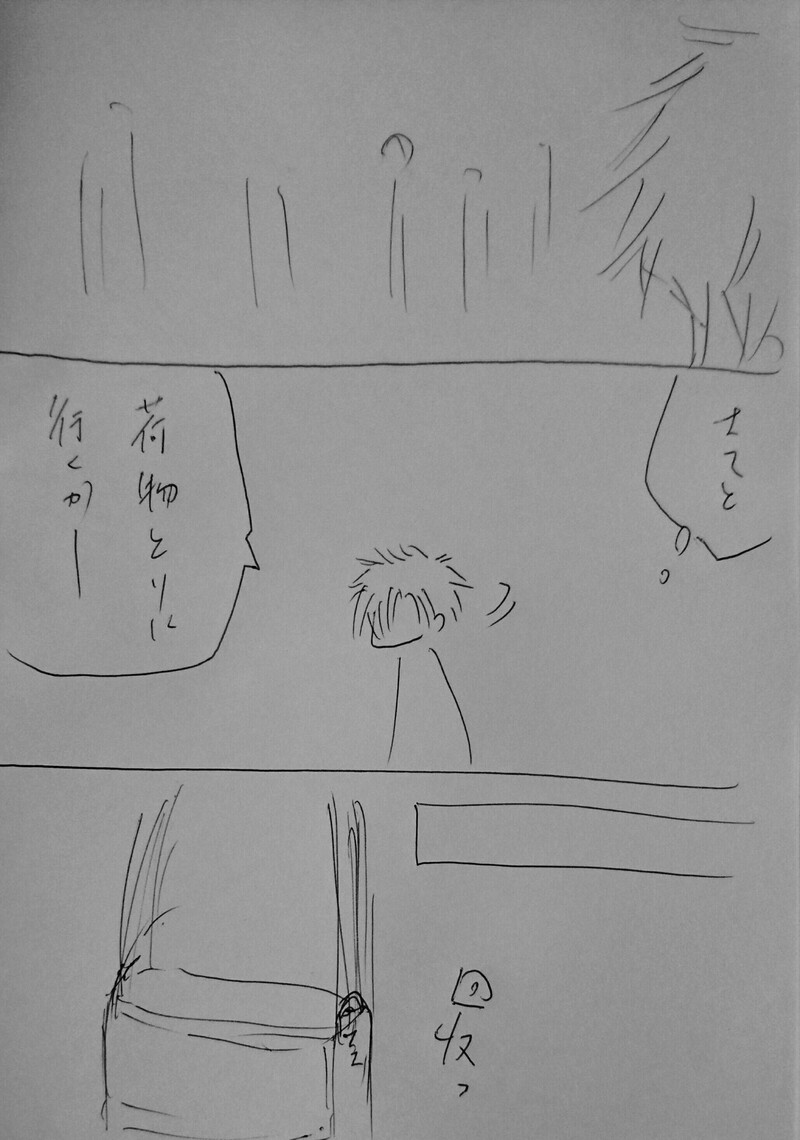 さてと
荷物とりに
行くかー
回収っ